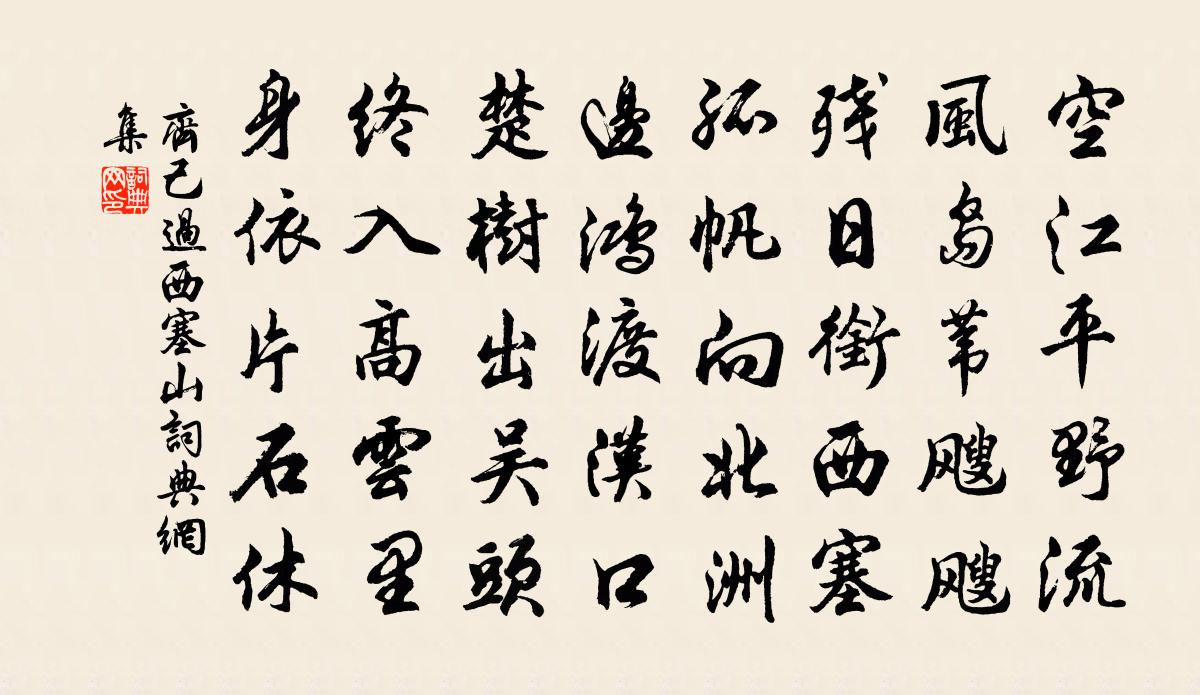 空江平野流
風島苇颼颼
残日銜西塞
孤帆向北洲
邊鴻渡漢口
楚樹出吴頭
終入高雲里
身依片石休
齊己過西塞山詞典網
集
詞典
网印